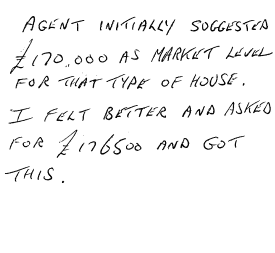 AGENT INITIALLY SUGGESTED
£170,000 AS MARKET LEVEL
FOR THAT TYPE OF HOUSE.
I FELT BETTER AND ASKED
FOR £176500 AND GOT
THIS.